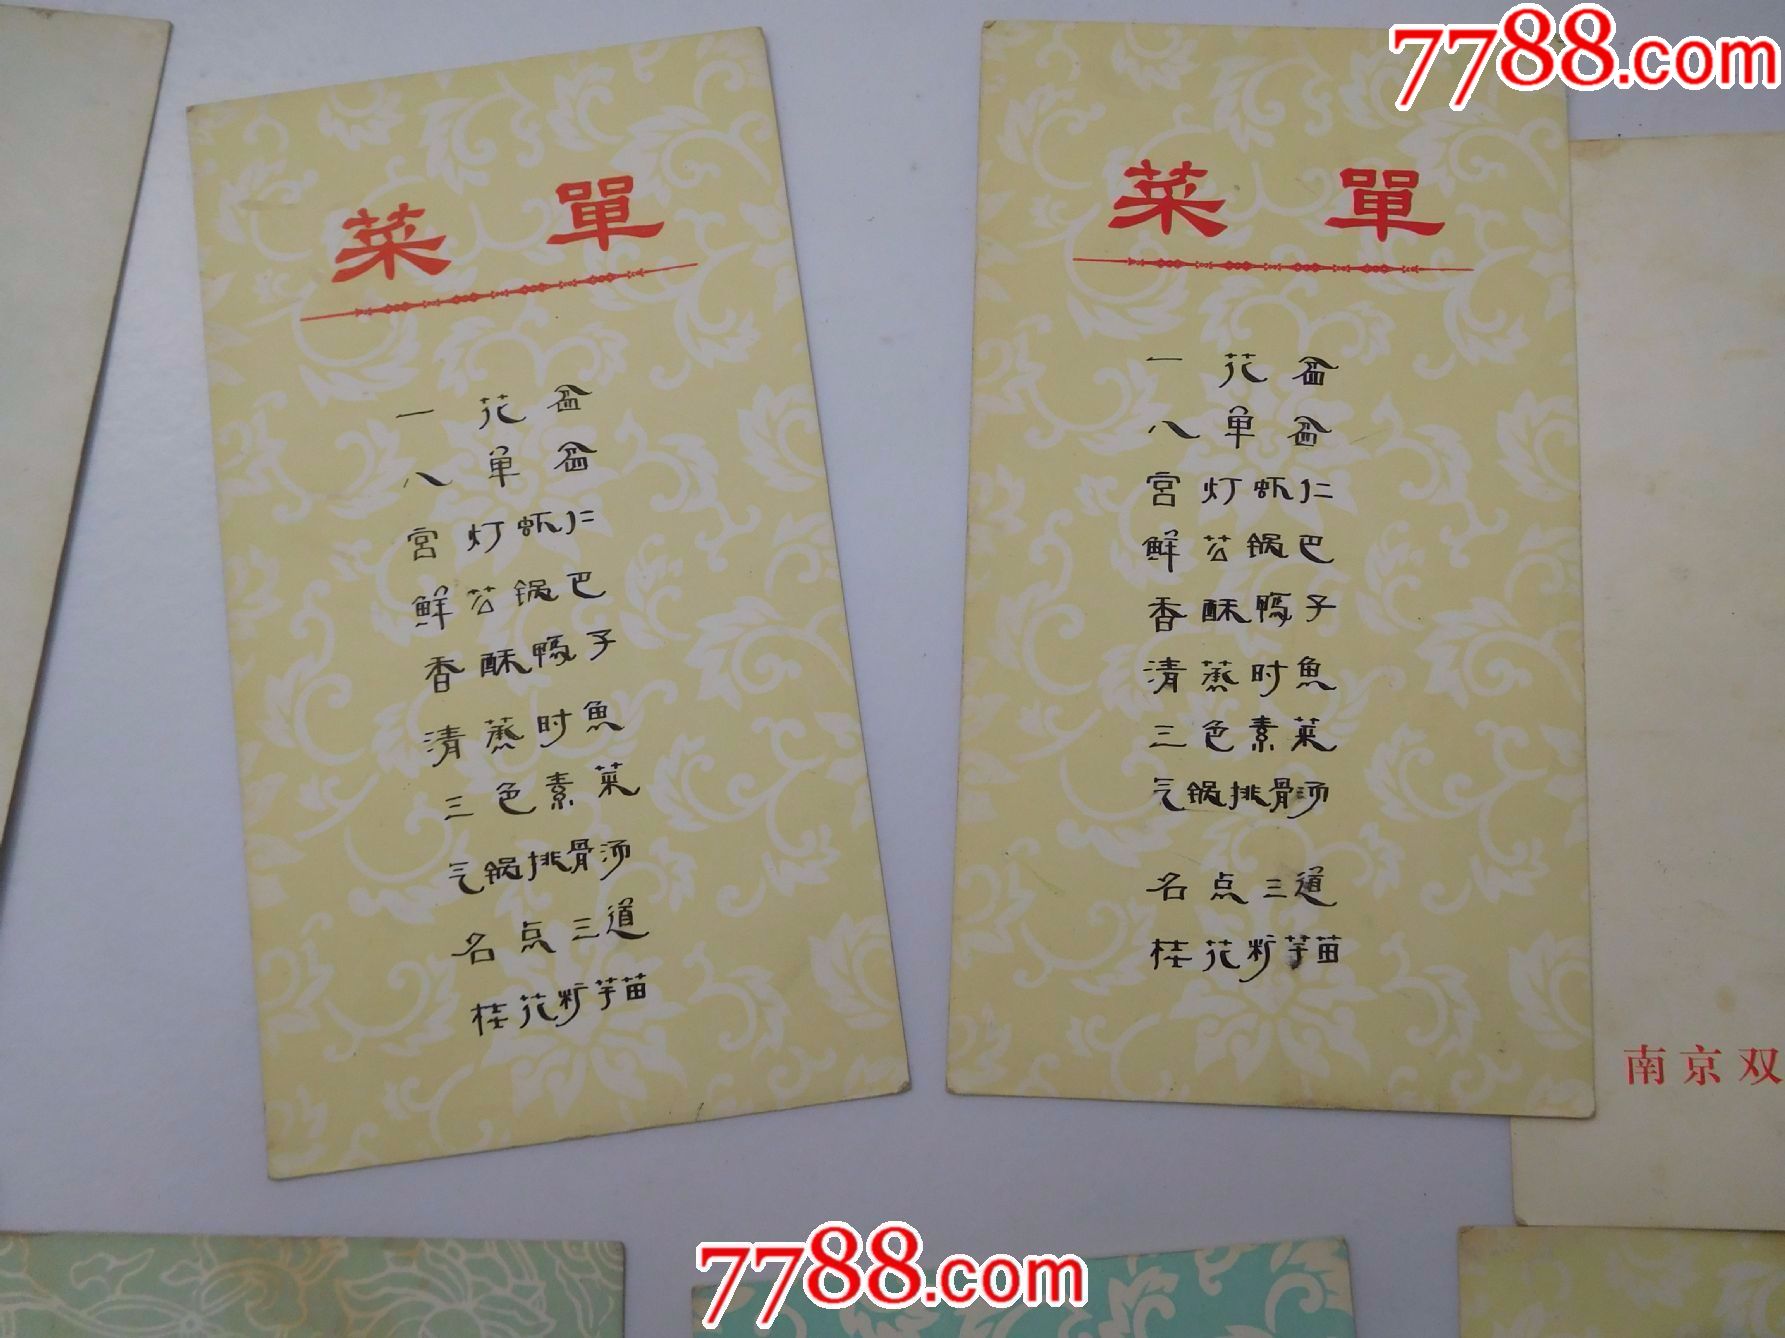 7788.com
菜單
一花盆
八单盆
宫灯虾仁
鲜芶锅巴
香酥鴨子
清蒸时魚
三色素菜
气锅排骨汤
名点三道
桂花籽芋苗
菜單
一花盆
八单盆
宫灯虾仁
鲜芶锅巴
香酥鴨子
清蒸时魚
三色素菜
气锅排骨汤
名点三道
桂花籽芋苗
南京双
7788.com